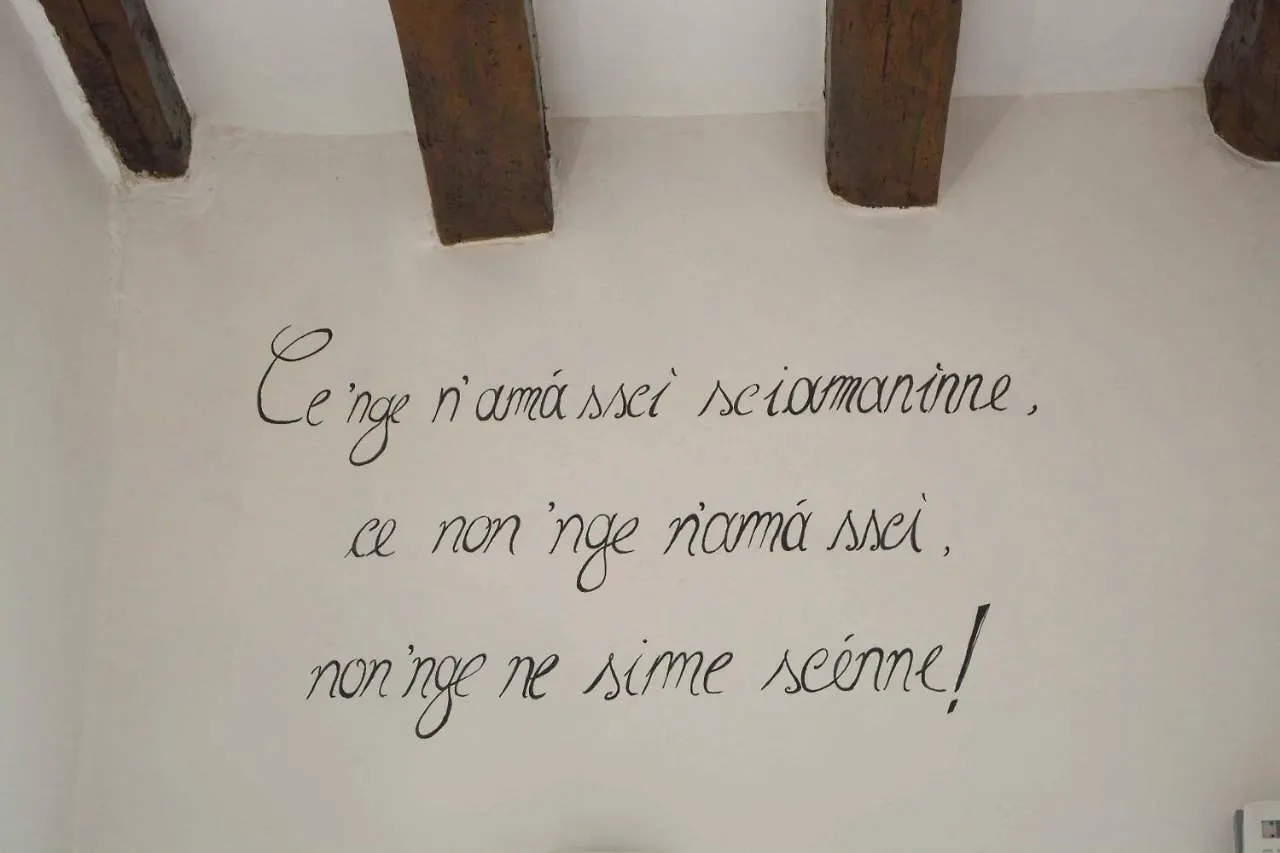 Ce 'nge n'amá sscì sciamaninne,
ce non 'nge n'amá sscì,
non 'nge ne sime scénne!